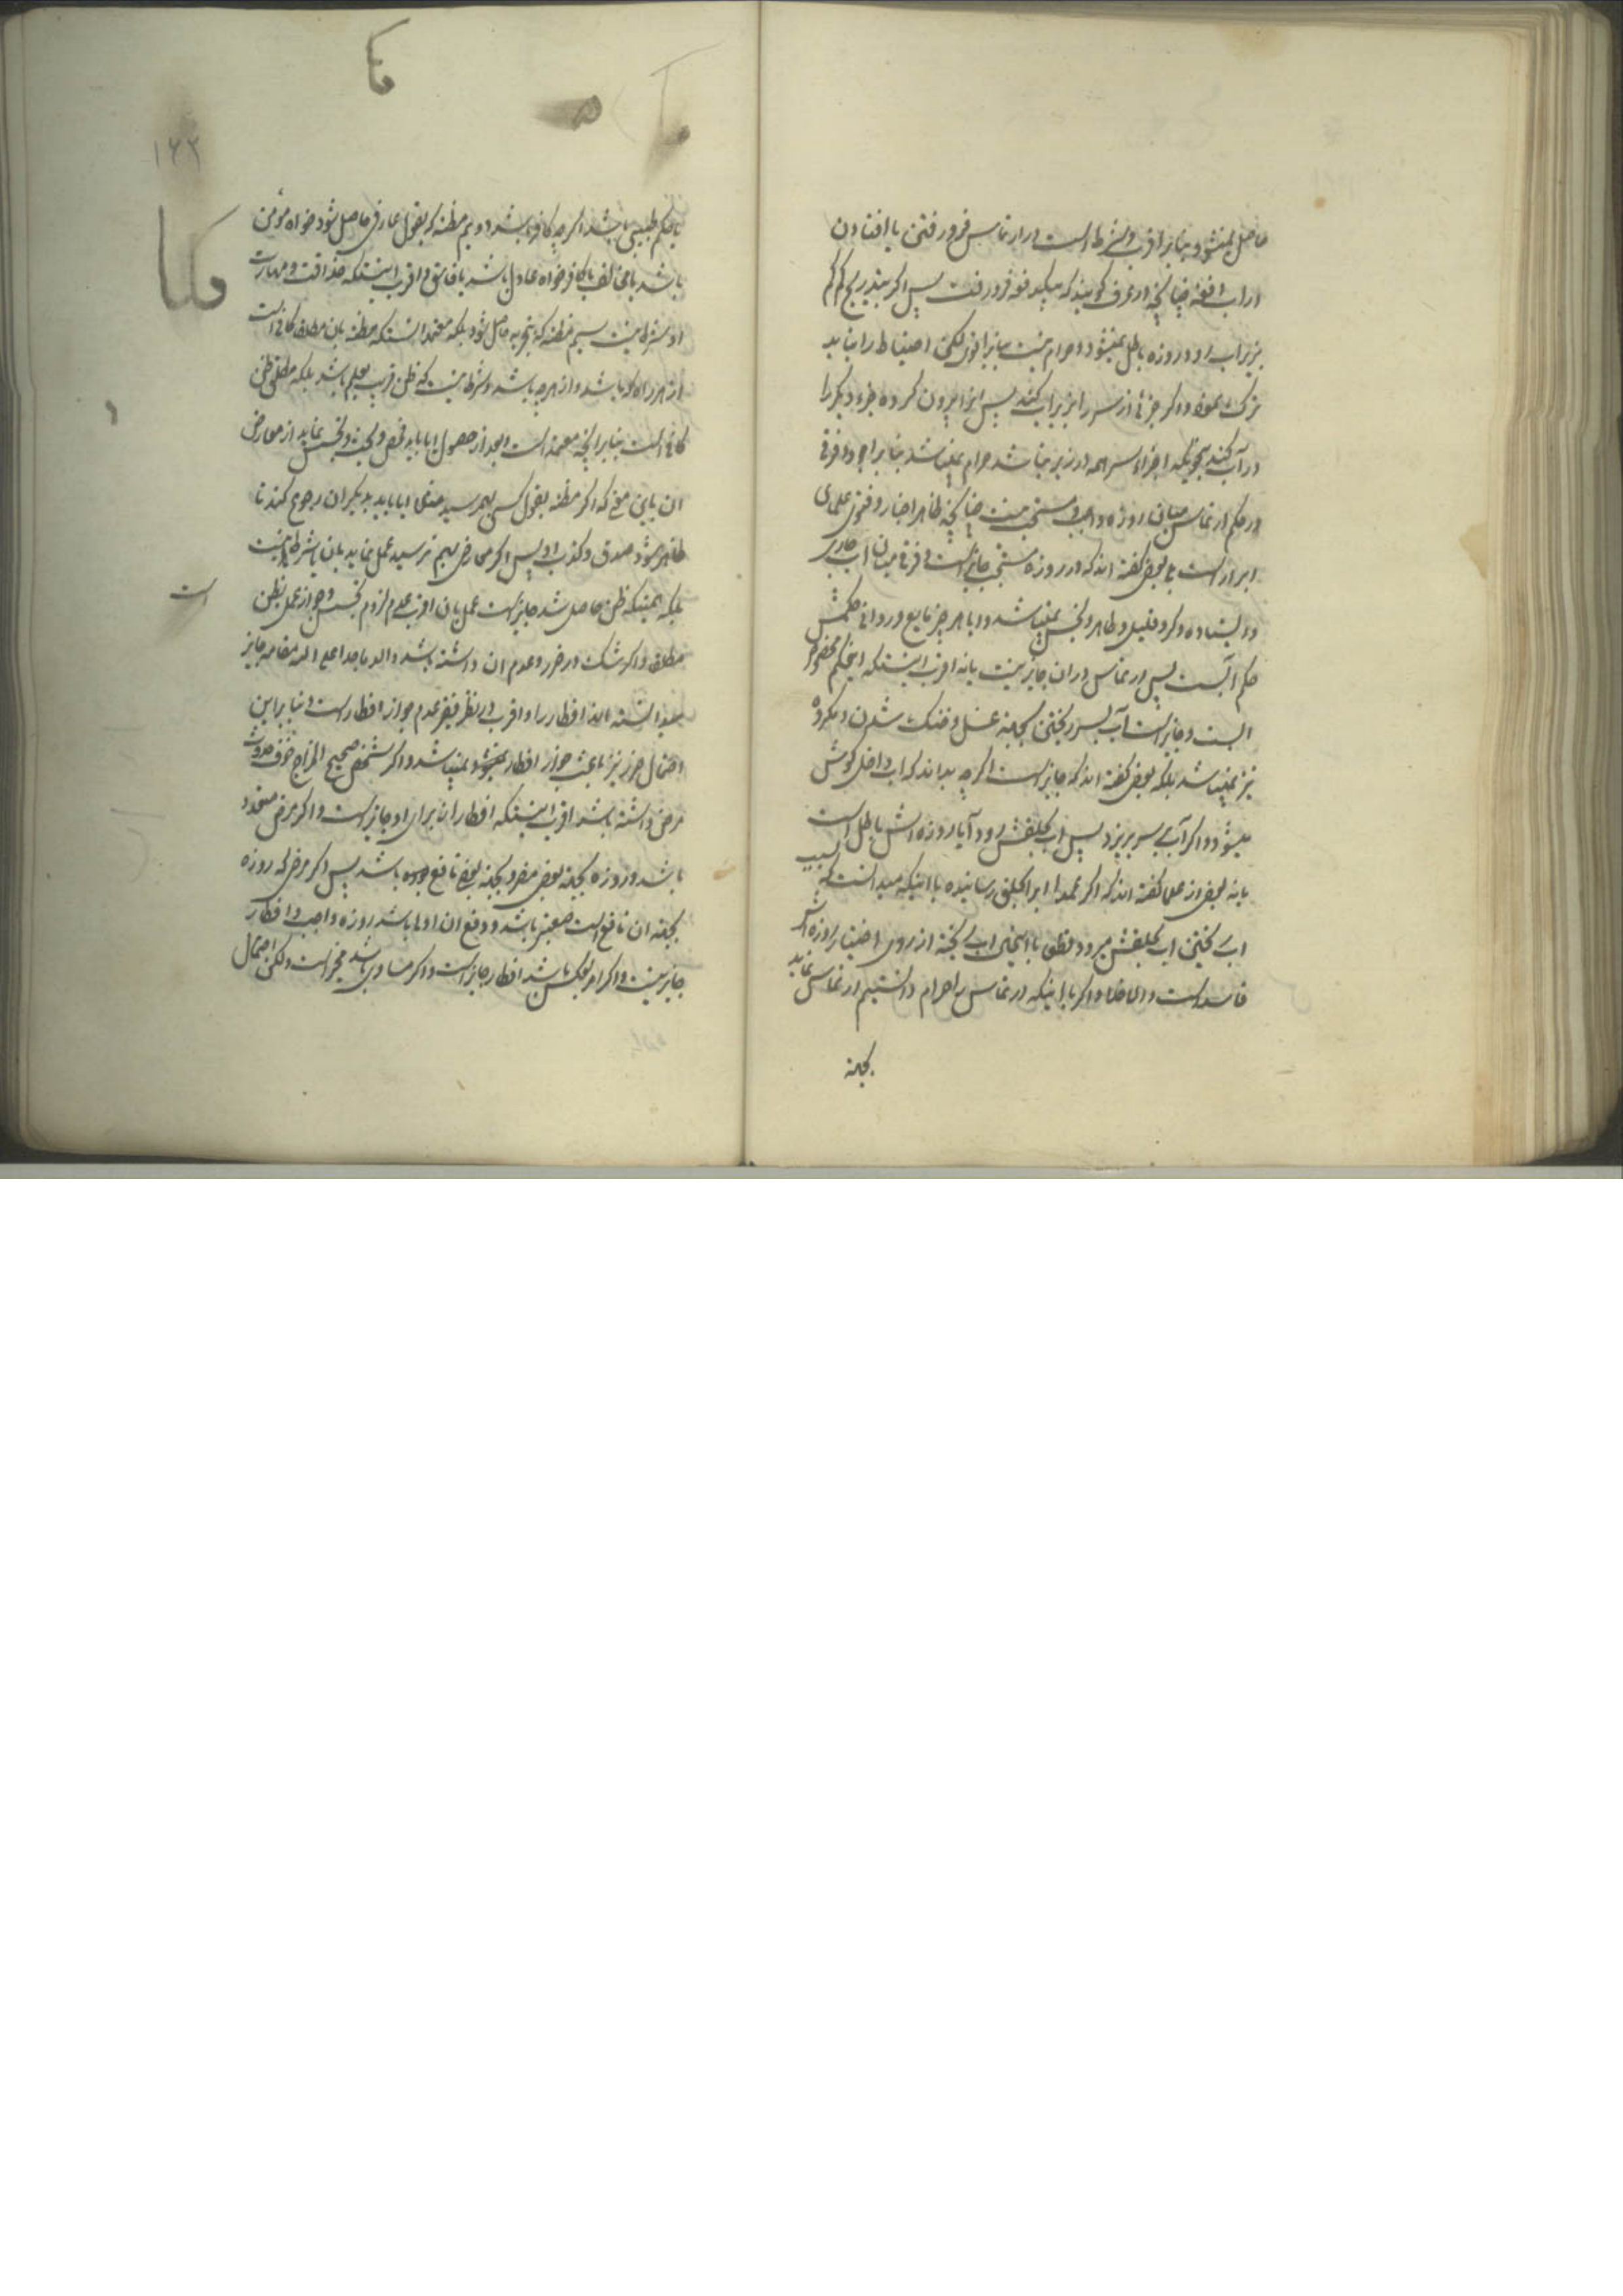 حاصل نمیشود بنابر اقرب و شرط است در ارتماس فرو رفتن یا افتادن
در آب دفعة چنانچه در عرف کویند که بیکدفعه فرو رفت پس اکر بتدریج کم کم
بزیر اب رود روزه باطل نمیشود و حرام نیست بنابر اقوی لکن احتیاط را نباید
ترک نمود و اکر جزئی از سر را بزیر اب کند پس انرا بیرون کرده جزء دیکر را
در آب کند بنحویکه اجزاء سر همه در زیر نباشد حرام نمیباشد بنابر اجود و فرقی
در حکم ارتماس میان روزه واجب و مستحب نیست چنانچه ظاهر اخبار و فتوی علمای
ابرار است بلی بعضی کفته اند که در روزه سنتی جایز است و فرقی میان اب جاری
و ایستاده و کر و قلیل و طاهر و نجس نمیباشد و ایا هر چیز مایع و روانی حکمش
حکم آبست پس ارتماس در ان جایز نیست یا نه اقرب اینستکه اینحکم مخصوص
ابست و جایز است آب بسر ریختن بجهة غسل و خنک شدن و مکروه
نیز نمیباشد بلکه بعضی کفته اند که جایز است اکرچه بداند که اب داخل کوشش
میشود و اکر آب بسر بریزد پس اب بحلقش رود آیا روزه اش باطل است
یا نه بعضی از علما کفته اند که اکر عمدا ابرا بحلق رسانیده یا اینکه میدانست که بسبب
اب ریختن اب بحلقش میرود قطعا با اینحال اب ریخته از روی اختیار روزه اش
فاسد است و الا فلا و اکر با اینکه ارتماس را حرام دانستیم ارتماس نماید
بجهة
۱۲۲
یا بحکم طبیبی باشد اکرچه کافر باشد دویم مظنه که بقول عارفی حاصل شود خواه مؤمن
باشد یا مخالف یا کافر خواه عادل باشد یا فاسق و اقرب اینستکه حذاقت و مهارت
او شرط نیست سیم مظنه که بتجربه حاصل شود بلکه معتمد انستکه مظنه بان مطلقا کافی است
از هر راه که باشد و از هر چه باشد و شرط نیست که ظن قریب بعلم باشد بلکه مطلق ظن
کافی است بنابر آنچه معتمد است و بعد از حصول ایا باید فحص و تجسس نماید از معارض
ان باین معنی که اکر مظنه بقول کسی بهمرسید مثلا ایا باید بدیکران رجوع کند تا
ظاهر شود صدق و کذب او پس اکر معارضی بهم نرسید عمل نماید بان یا شرط نیست
بلکه همینکه ظن حاصل شد جایز است عمل بان اقرب عدم لزوم تجسس و جواز عمل بظن
است
مطلقا و اکر شک در ضرر و عدم ان داشته باشد والد ماجد اعلی الله مقامه جایز
میدانسته اند افطار را و اقرب در نظر فقیر عدم جواز افطار است و بنابراین
احتمال ضرر نیز باعث جواز افطار نمیباشد و اکر شخص صحیح المزاج خوف حدوث
مرض داشته باشد اقرب اینستکه افطار از برای او جایز است و اکر مرض متعدد
باشد و روزه بجهة بعضی مضر و بجهة بعضی نافع بوده باشد پس اکر مرضی که روزه
بجهة ان نافع است معتبر باشد و دفع ان اولی باشد روزه واجب و افطار
جایز نیست و اکر امر بعکس باشد افطار جایز است و اکر مساوی باشد مخیر است ولکن احتمال